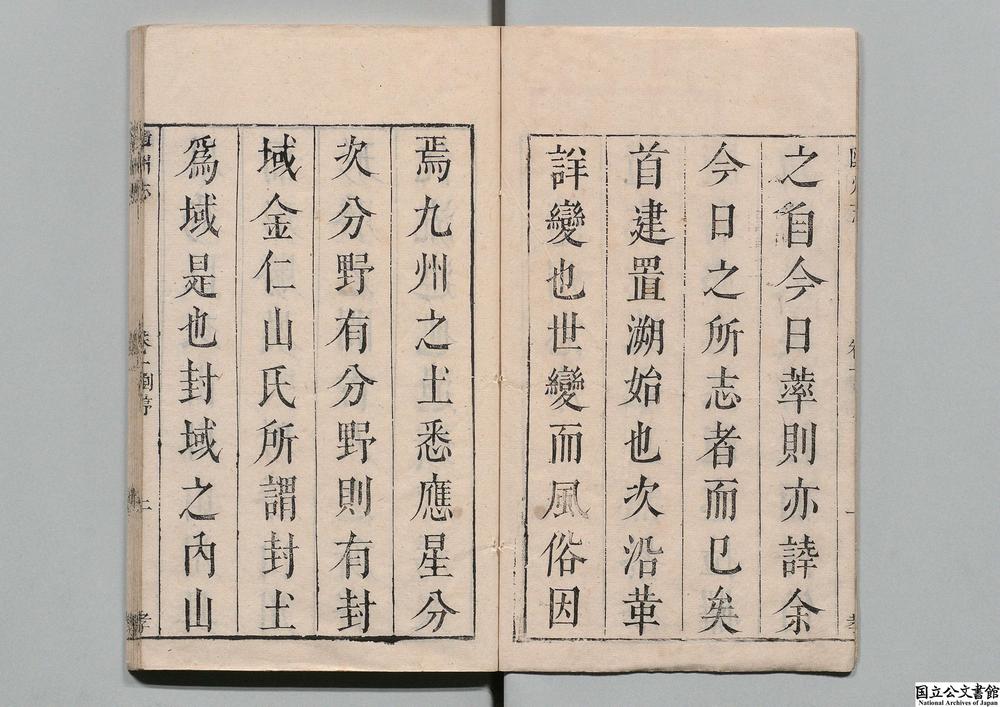 之自今日蕐則亦誖余
今日之所志者而巳矣
首建置溯始也次沿革
詳變也世變而風俗因
焉九州之土悉應星分
次分野有分野則有封
域金仁山氏所謂封土
為域是也封域之內山
国立公文書館
National Archives of Japan